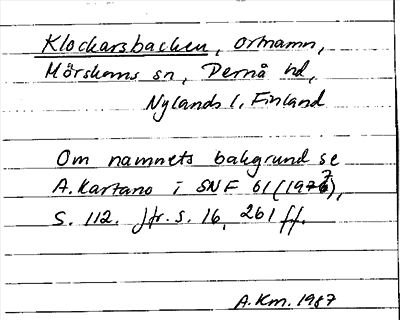 Klockarsbacken, ortnamn,
Mörskoms sn, Pernå hd,
Nylands l, Finland
Om namnets bakgrund se
A. Kartano i SNF 61 (1973),
S. 112. Jfr. s. 16, 261 ff.
A.Km. 1987